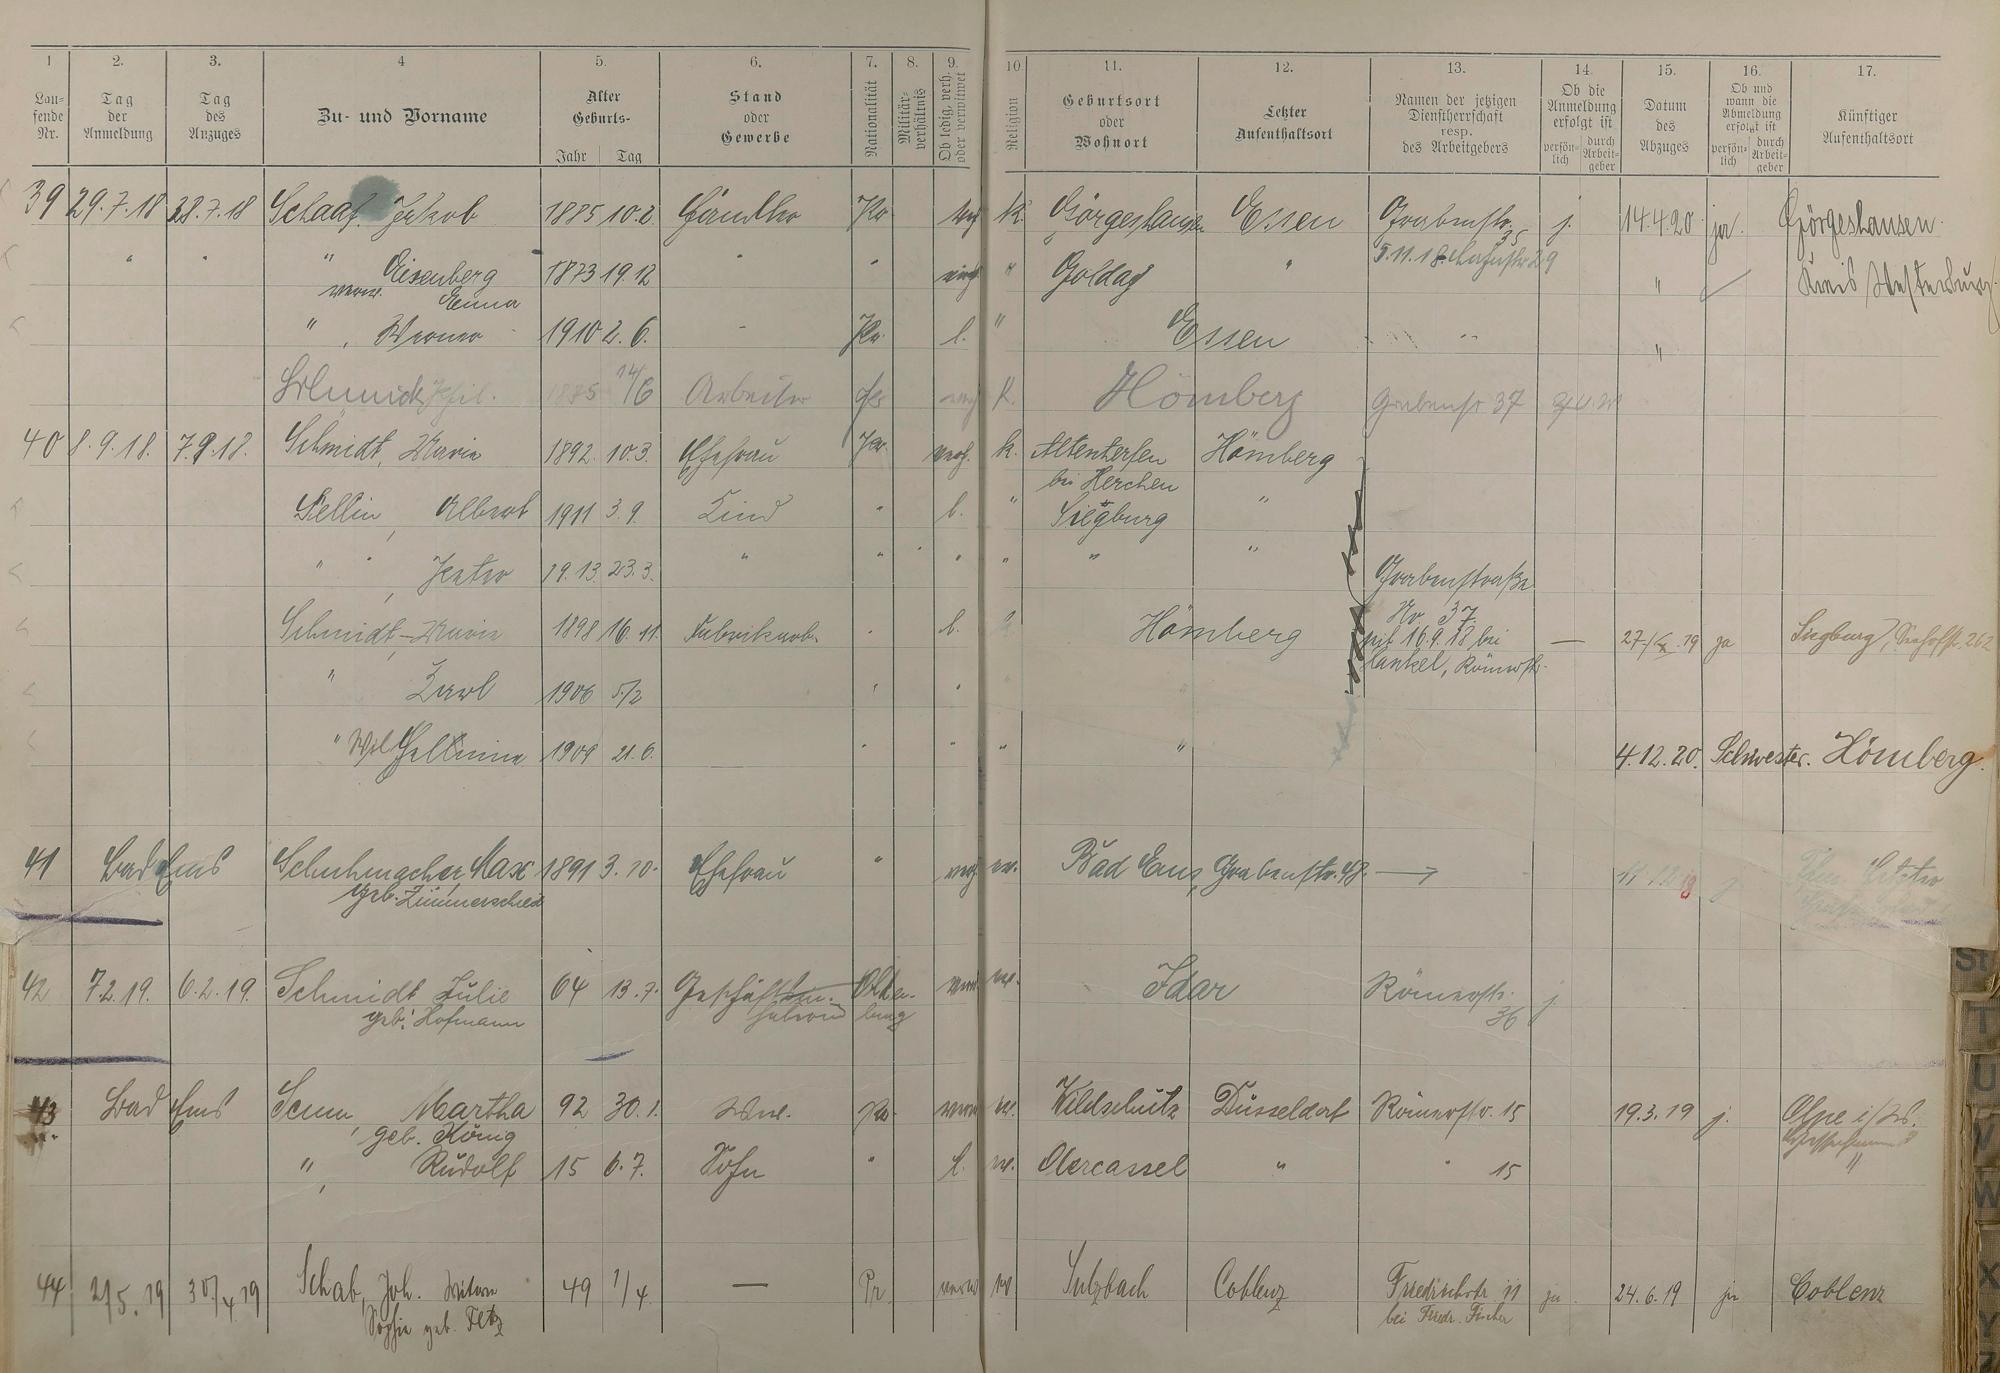 1 2. 3. 4 5. 6. 7. 8. 9. 10 11. 12. 13. 14. 15. 16. 17.
Lau-
fende
Nr.
Tag
der
Anmeldung
Tag
des
Anzuges
Zu- und Vorname
Alter
Geburts-
Jahr Tag
Stand
oder
Gewerbe
Nationalität
Militär-
verhältnis
Ob ledig, verh.
oder verwitwet
Religion
Geburtsort
oder
Wohnort
Letzter
Aufenthaltsort
Namen der jetzigen
Dienstherrschaft
resp.
des Arbeitgebers
Ob die
Anmeldung
erfolgt ist
persön-
lich
durch
Arbeit-
geber
Datum
des
Abzuges
Ob und
wann die
Abmeldung
erfolgt ist
persön-
lich
durch
Arbeit-
geber
Künftiger
Aufenthaltsort
39 29.7.18 28.7.18 Schaaf Jakob 1885 10.2. Händler Pr. verh K. Görgeshausen Essen Grabenstr. 35 j. 14.4.20 ja. Görgeshausen
" " " Eisenberg 1873 19.12 " " verh " " 5.11.18 29 " Kreis Westerburg
verw. Emma
" , Werner 1910 2.6. Pr. l. " Essen "
Schmidt Phil. 1885 14/6 Arbeiter Pr. verh K. Hömberg Grabenstr 37
40 8.9.18. 7.9.18. Schmidt, Maria 1892 10.3. Ehefrau Pr. verh. k. Altenherfen Hömberg
bei Herchen
Sellin, Albert 1911 3.9. Kind " l. " Siegburg "
" " , Peter 19.13 23.3. " " " " " " Grabenstraße
Nr. 37.
Schmidt, Maria 1898 16.11. Fabrikarb. " l. Hömberg seit 16.9.18 bei — 27. .19 ja Siegburg,
Kunkel, Römerstr.
" Karl 1906 5/2 " "
" Wilhelmine 1909 21.6. " " " " 4.12.20. Schwester. Hömberg.
41 Bad Ems Schuhmacher Max 1891 3.10. Ehefrau " verh ev. Bad Ems, Grabenstr. 48. →
geb. Zimmerschied
42 7.2.19. 6.2.19. Schmidt Julie 64 13.7. Olden- verw ev. Idar Römerstr. j
geb. Hofmann burg 36
43 Bad Ems Senn, Martha 92 30.1. Wwe. Pr. verw ev. Wildschütz Düsseldorf Römerstr. 15 19.3.19 j. Olpe i/W.
geb. König
" , Rudolf 15 6.7. Sohn " l. ev. Obercassel " " 15 "
44 2/5.19 30/4 19 Schab, Joh. Witwe 49 1/4 — Pr. verw ev Sulzbach Coblenz Friedrichstr. 11 ja 24.6.19 ja Coblenz
Sophie geb. Fetz bei Friedr. Fischer
St
T
U
V
W
X
Y
Z